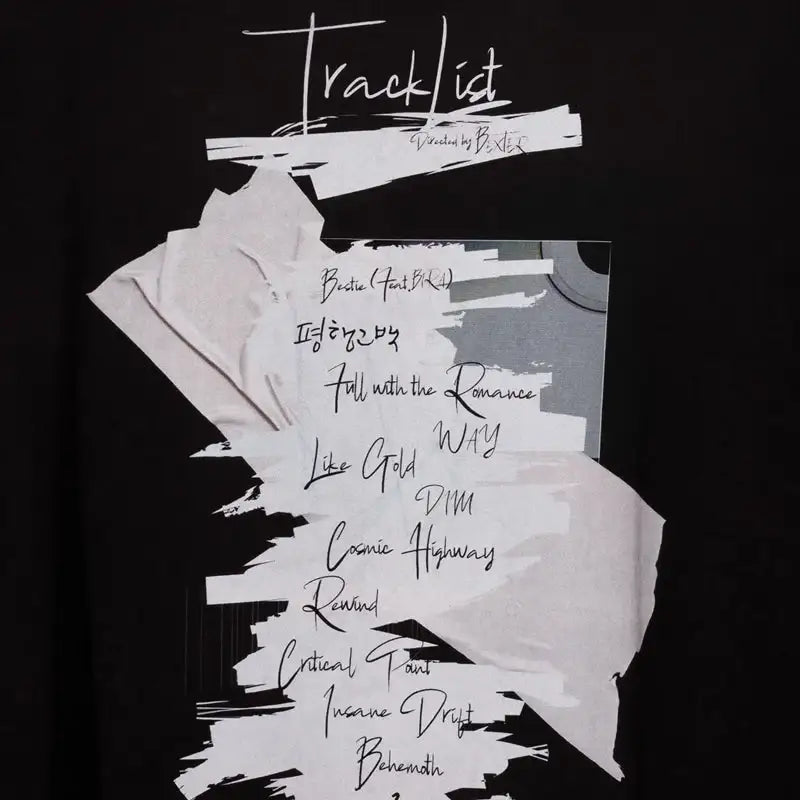 TrackList
Directed by BEXTER
Bestie (Feat.
평행고백
Full with the Romance
WAY
Like Gold
DIM
Cosmic Highway
Rewind
Critical Point
Insane Drift
Behemoth